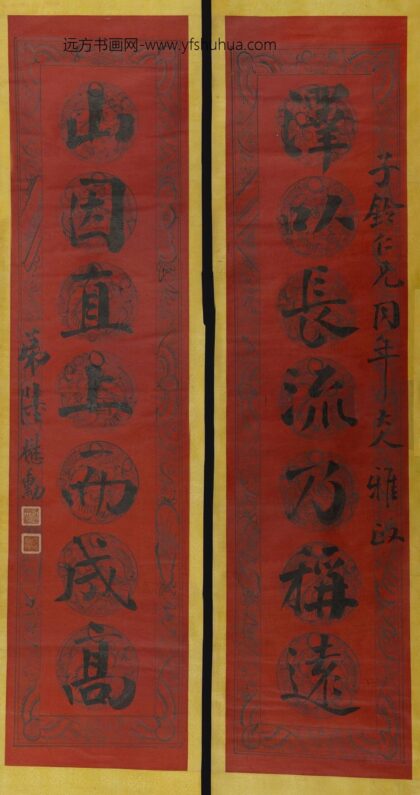 远方书画网-www.yfshuhua.com
子鈴仁兄同年大人雅正
澤以長流乃稱遠
山因直上而成高
弟陸懋勳